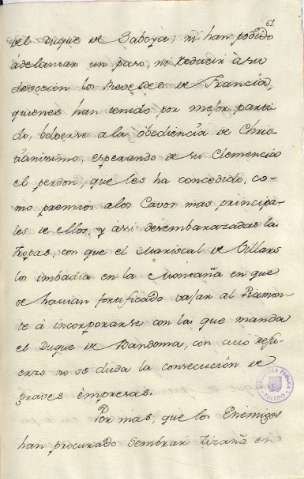 61
del Duque de Saboya; ni han podido
adelantar un paso, ni reducir à su
devocion los Reveldes de Francia,
quienes han tenido por mejor parti-
do, bolverse a la obediencia de Chris-
tianissimo, esperando de su Clemencia
el perdon, que les ha concedido, co-
mo premios a los Cavos mas principa-
les de ellos, y assi desembarazadas las
Tropas, con que el Mariscal de Villars
los imbadia en la Montaña en que
se havian fortificado vajan al Piamon-
te à incorporarse con las que manda
el Duque de Vandoma, con cuio refu-
erzo no se duda la consecucion de
graves empresas.
Por mas, que los Enemigos
han procurado sembrar Zizaña en
TOLEDO